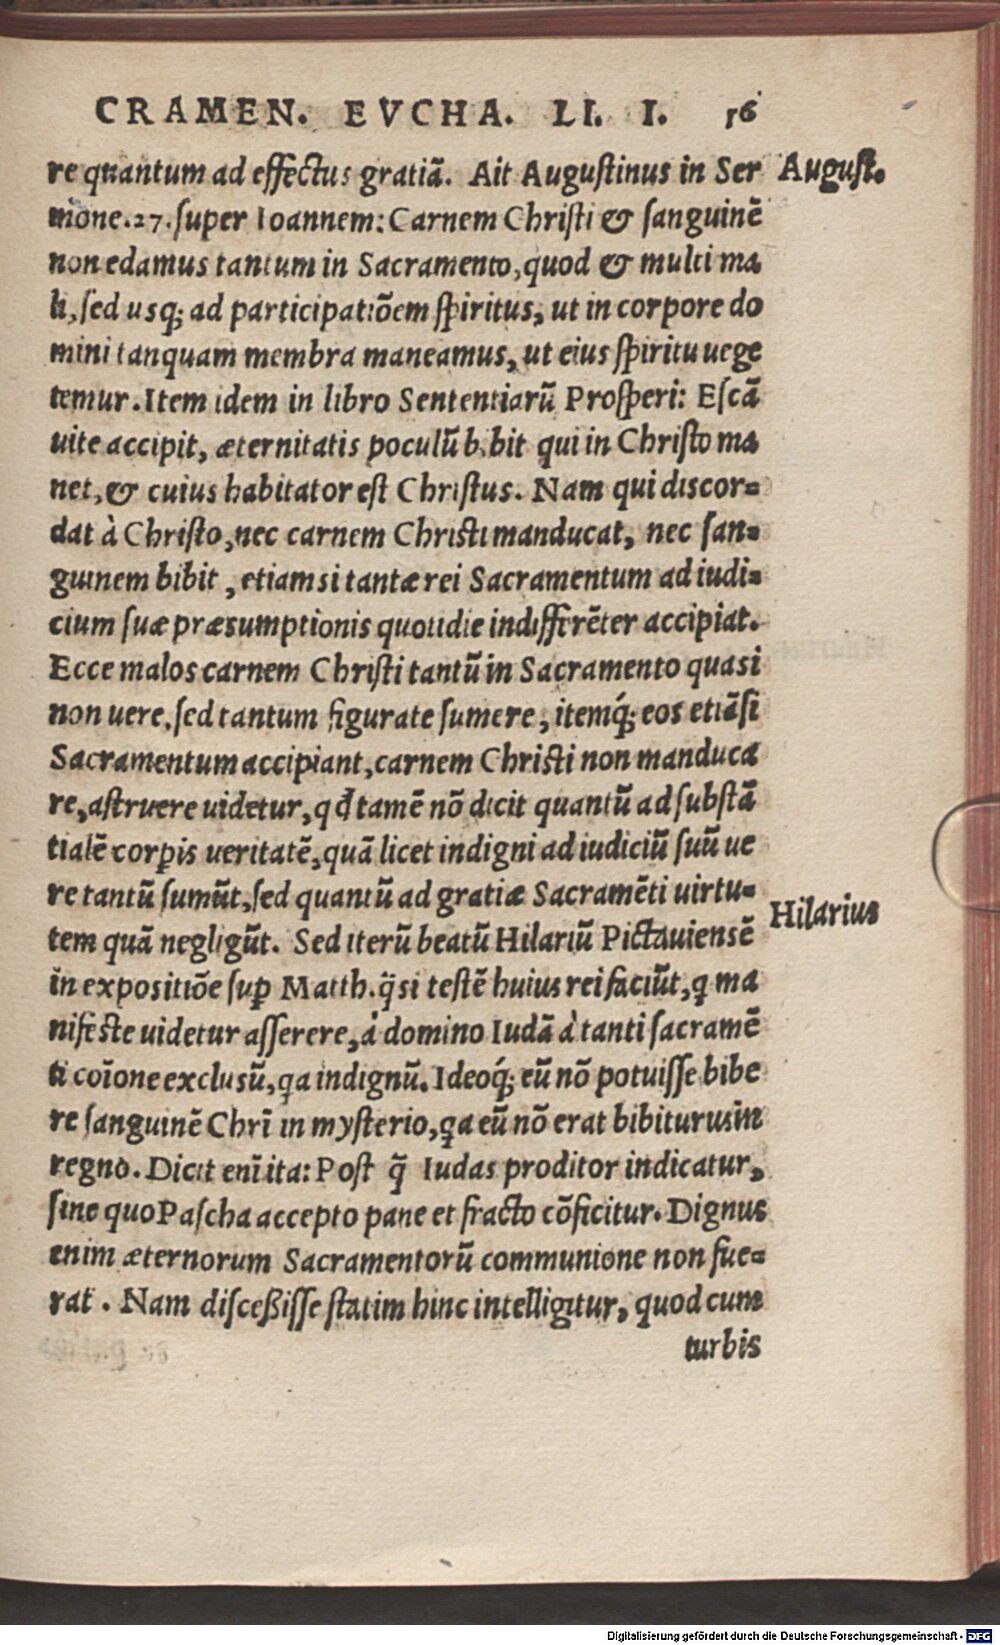 CRAMEN. EVCHA. LI. I. 16
re quantum ad effectus gratiã. Ait Augustinus in Ser August.
mone.27.super Ioannem: Carnem Christi & sanguinẽ
non edamus tantum in Sacramento, quod & multi ma
li, sed usq; ad participatiõem spiritus, ut in corpore do
mini tanquam membra maneamus, ut eius spiritu uege
temur. Item idem in libro Sententiarũ Prosperi: Escã
uite accipit, æternitatis poculũ bibit qui in Christo ma
net, & cuius habitator est Christus. Nam qui discor-
dat à Christo, nec carnem Christi manducat, nec san-
guinem bibit, etiamsi tantæ rei Sacramentum ad iudi-
cium suæ præsumptionis quotidie indifferẽter accipiat.
Ecce malos carnem Christi tantũ in Sacramento quasi
non uere, sed tantum figurate sumere, itemq́; eos etiãsi
Sacramentum accipiant, carnem Christi non manduca
re, astruere uidetur, qđ tamẽ nõ dicit quantũ ad substã
tialẽ corpĩs ueritatẽ, quã licet indigni ad iudiciũ suũ ue
re tantũ sumũt, sed quantũ ad gratiæ Sacramẽti uirtu-
tem quã negligũt. Sed iterũ beatũ Hilariũ Pictauiensẽ Hilarius
in expositiõe sup̱ Matth. q̈si testẽ huius rei faciũt, q ma
nifeste uidetur asserere, à domino Iudã à tanti sacramẽ
ti coĩone exclusũ, qa indignũ. Ideoq́; eũ nõ potuisse bibe
re sanguinẽ Chrĩ in mysterio, qa eũ nõ erat bibiturus in
regno. Dicit enĩ ita: Post q̃ Iudas proditor indicatur,
sine quo Pascha accepto pane et fracto cõficitur. Dignus
enim æternorum Sacramentorũ communione non fue-
rat. Nam disceßisse statim hinc intelligitur, quod cum
turbis
Digitalisierung gefördert durch die Deutsche Forschungsgemeinschaft - DFG